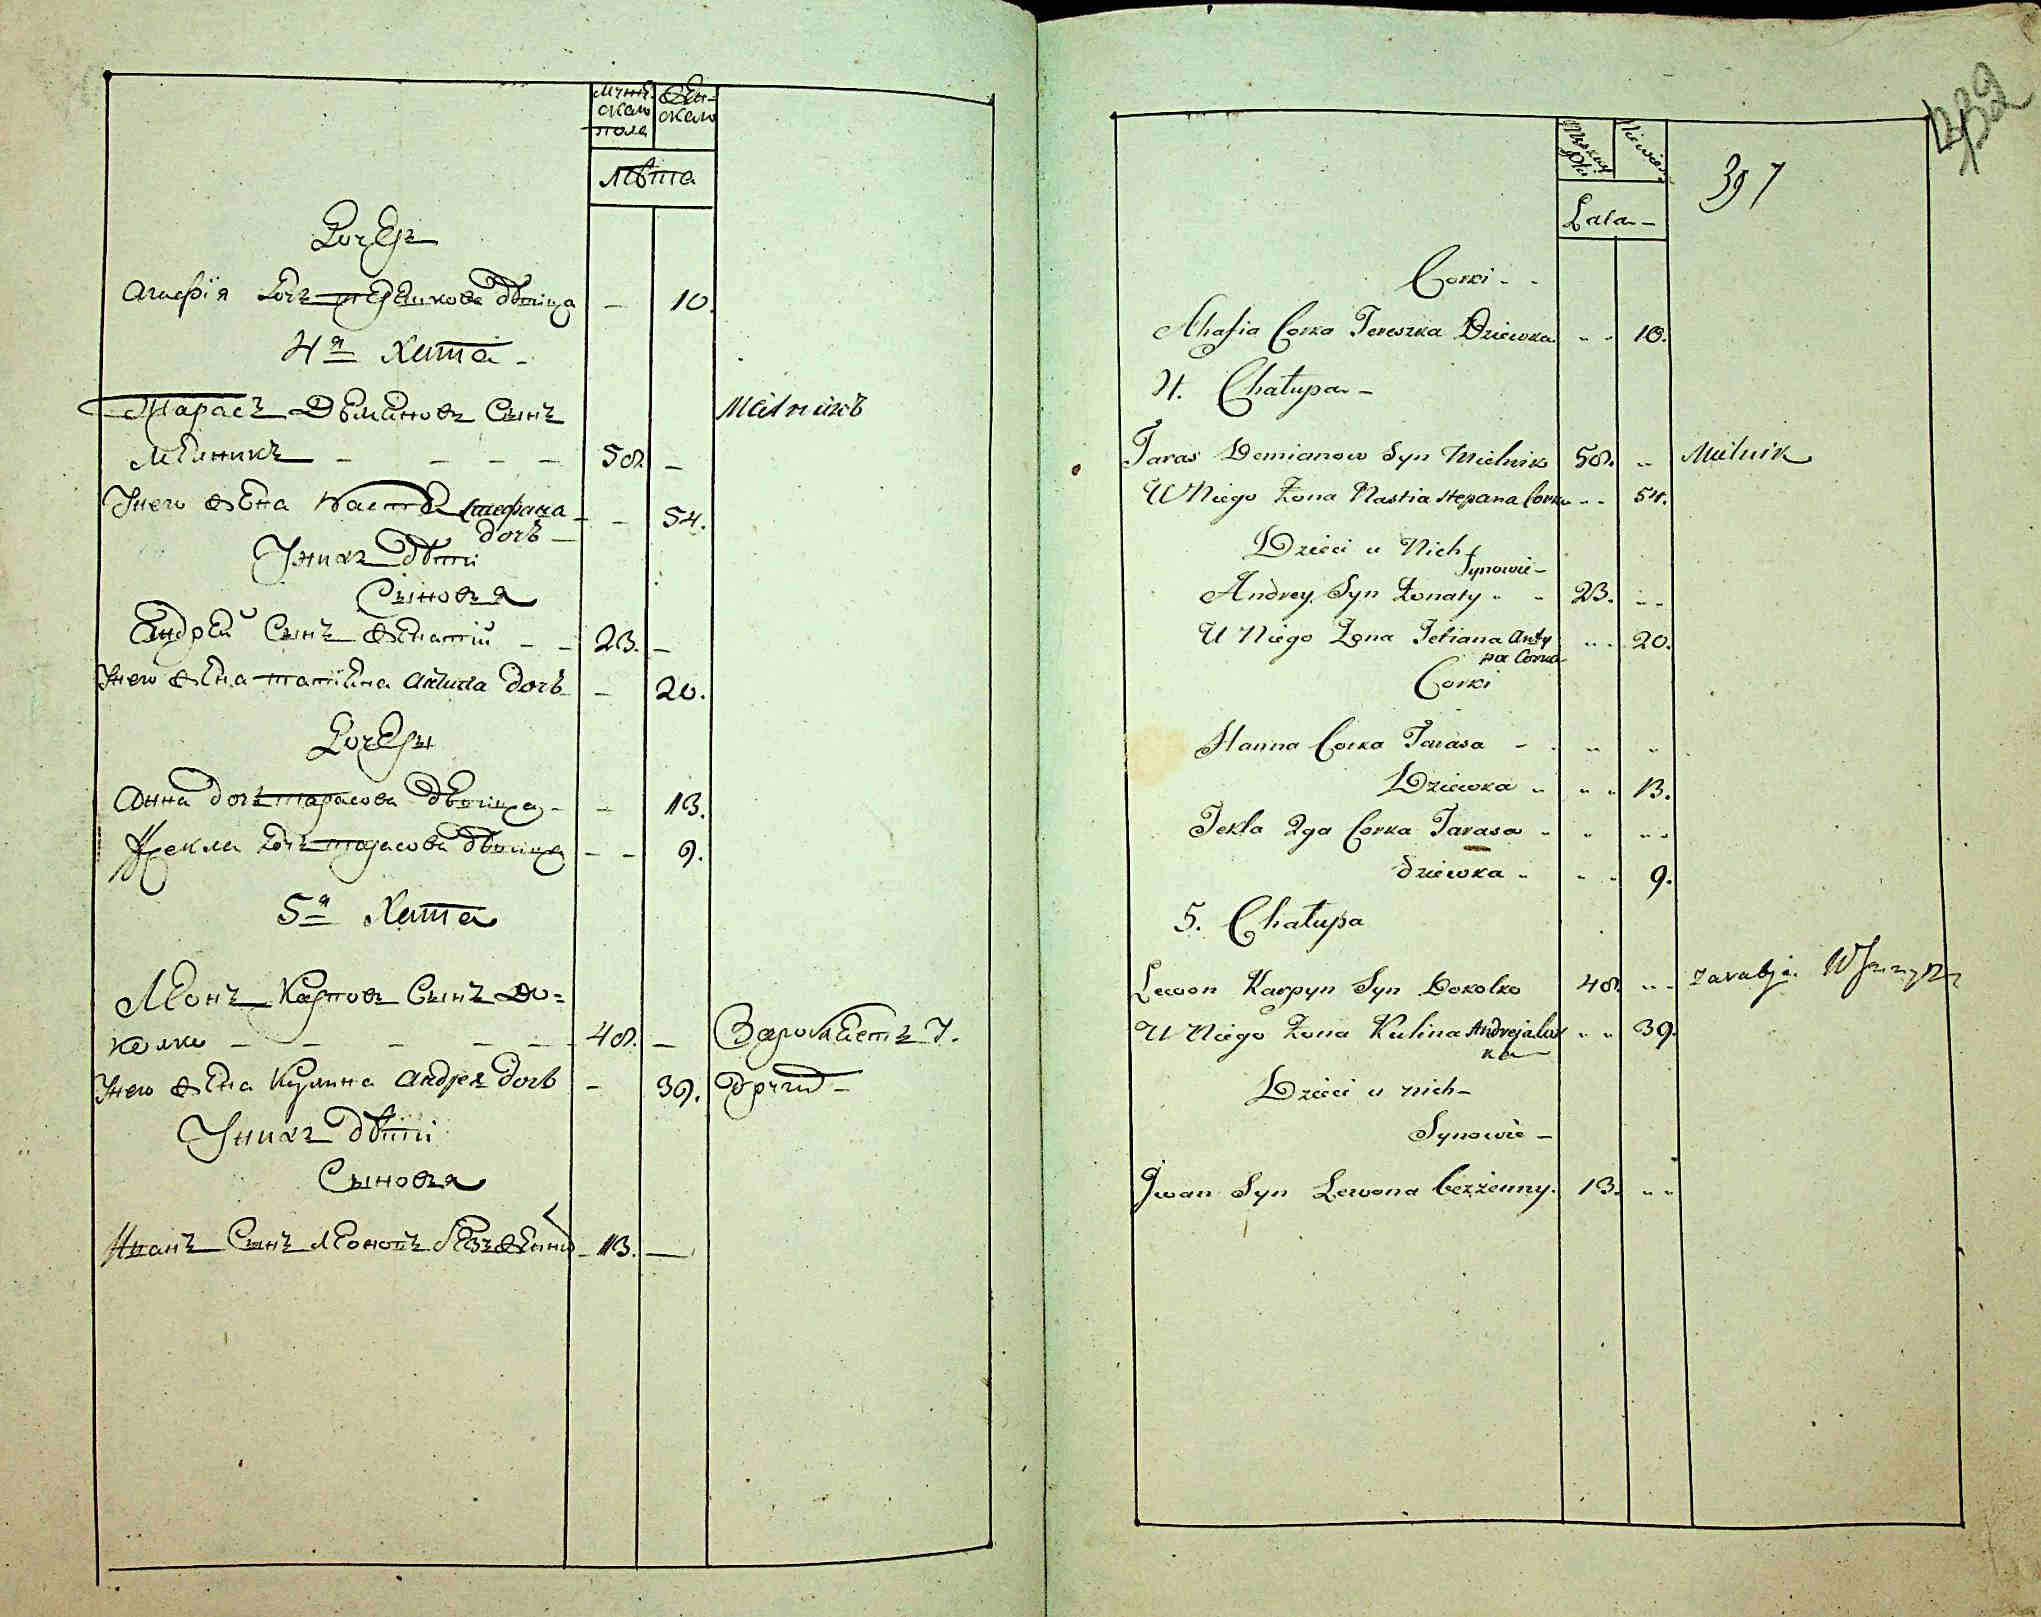 мужескаго пола
женскаго
лѣта
Дочерь
Агафія дочь терешкова дѣвица — 10.
4я Хата
Тарасъ Демяновъ Сынъ
Мелникъ — — — — 58. — Мелникъ
Унего жена Настя Стефана
дочь — — 54.
Унихъ дѣти
Сыновья
Андрей Сынъ женатій — — 23. —
Унего жена татіяна Антипа дочь — 20.
Дочеры
Анна дочь тарасова дѣвица — — 13.
Текла дочь тарасова дѣвица — — 9.
5я Хата
Леонъ Карповъ Сынъ До=
колко — — — — — 48. — Заробляетъ У.
Унего жена Кулина Андрея дочь — 39. другій —
Унихъ дѣти
Сыновья
Иванъ Сынъ Леоновъ безженый — 13. —
432
397
Męzkiey Płci
Niewies.
Lata
Corki
Ahafia Corka Tereszka Dziewka 10.
4. Chałupa
Taras Demianow Syn Mielnik 58. Mielnik
U Niego Żona Nastia Stepana Corka 54.
Dzieci u Nich
Synowie
Andrey Syn Żonaty 23.
U Niego Żona Tetiana Anty
pa Corka 20.
Corki
Hanna Corka Tarasa
Dziewka 13.
Tekla 2ga Corka Tarasa
dziewka 9.
5. Chałupa
Lewon Karpyn Syn Dokolko 48. zarabja.
U Niego Żona Kulina Andreja Cor
ka 39.
Dzieci u nich
Synowie
Jwan Syn Lewona bezżenny. 13.